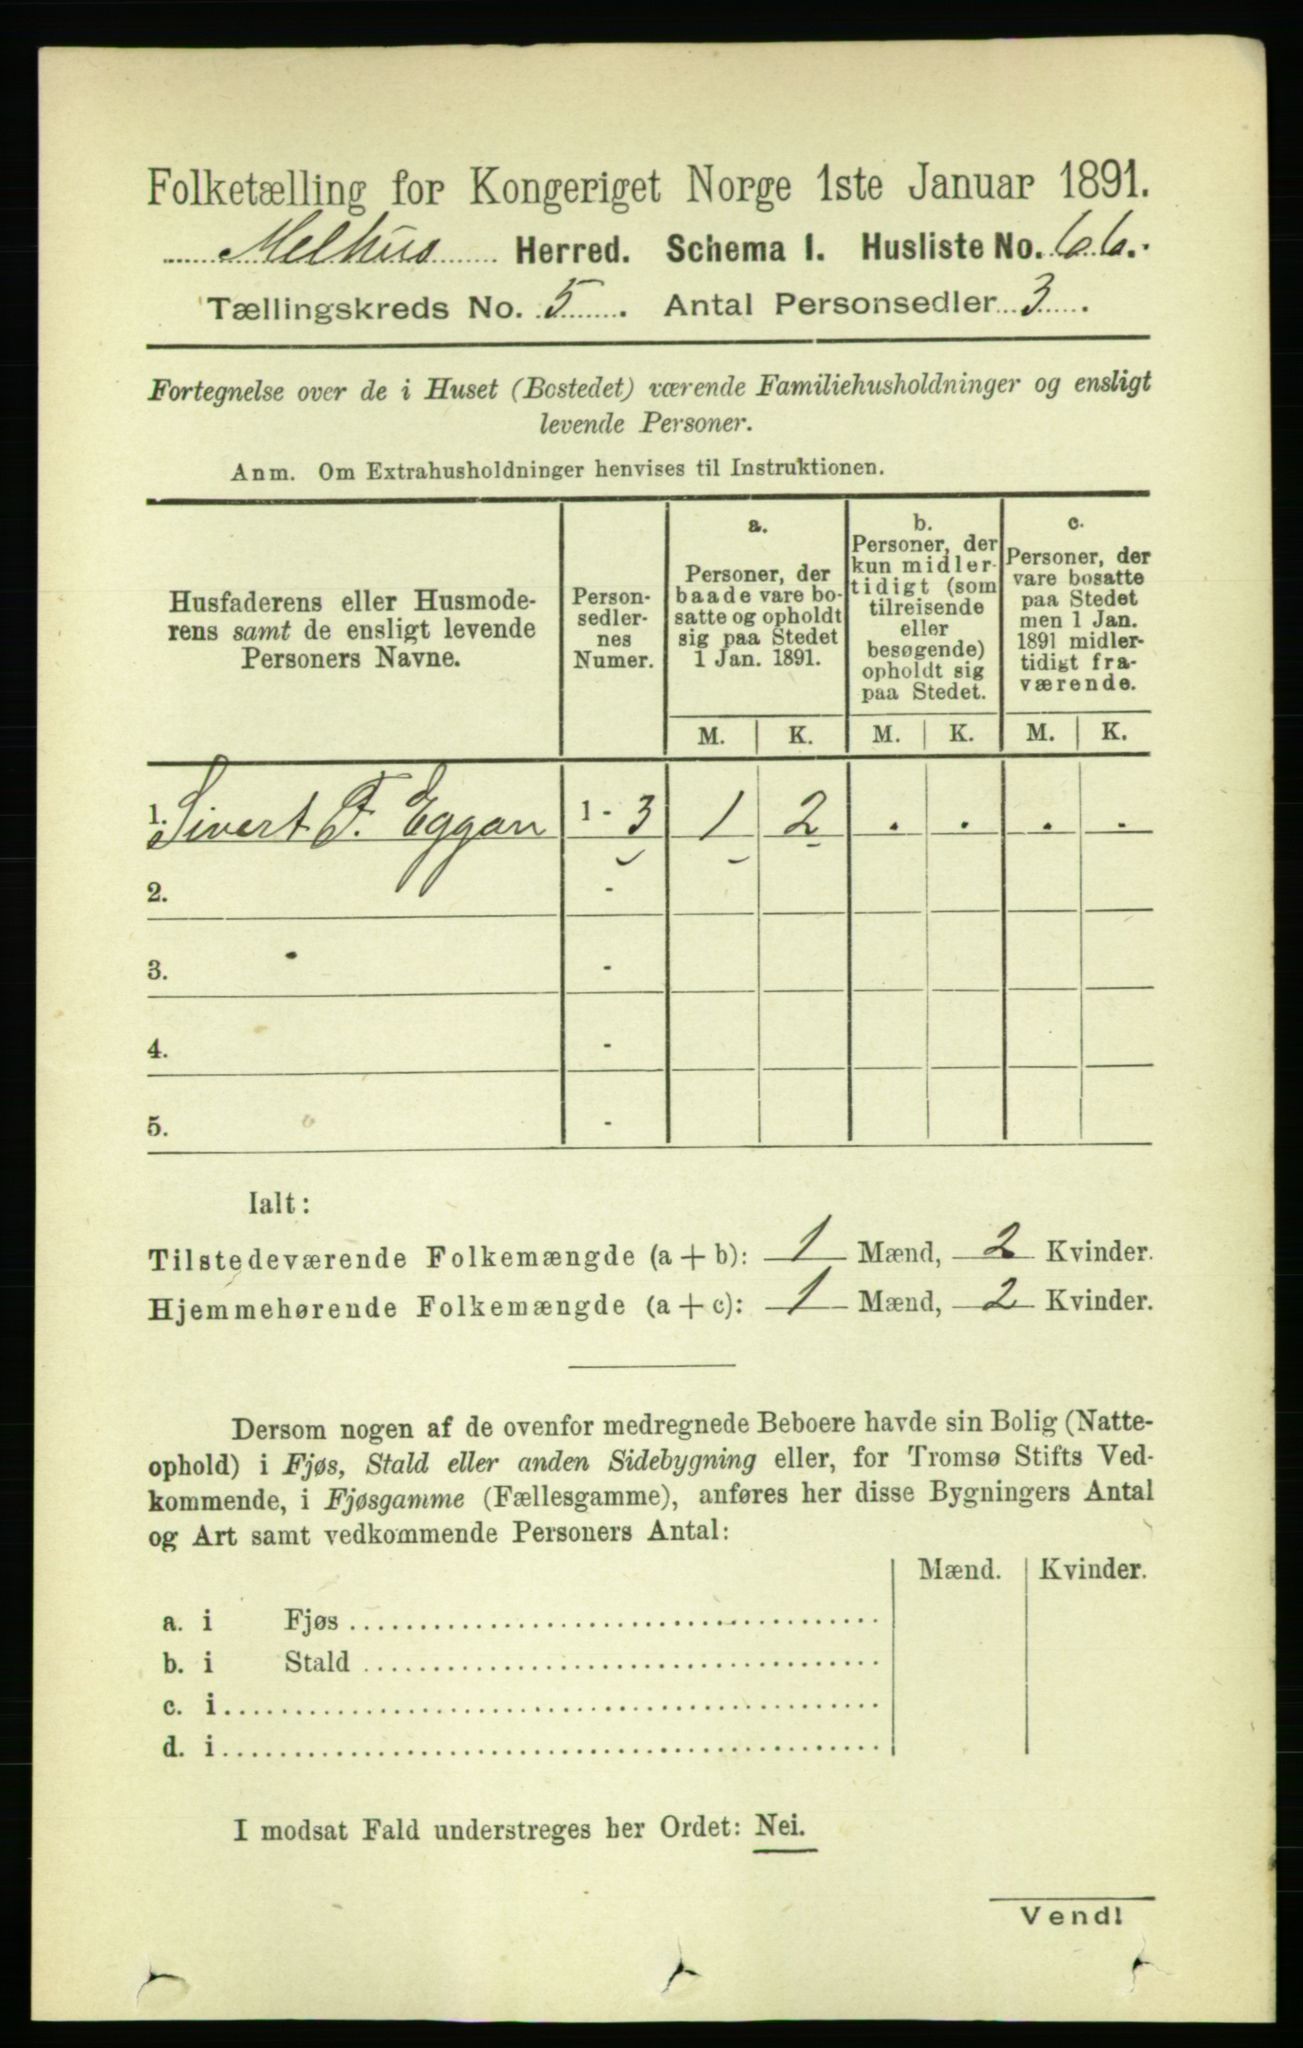 Folketælling for Kongeriget Norge 1ste Januar 1891.
Melhus Herred. Schema 1. Husliste No. 66.
Tællingskreds No. 5. Antal Personsedler 3.
Fortegnelse over de i Huset (Bostedet) værende Familiehusholdninger og ensligt
levende Personer.
Anm. Om Extrahusholdninger henvises til Instruktionen.
Husfaderens eller Husmode-
rens samt de ensligt levende
Personers Navne.
Person-
sedler-
nes
Numer.
a.
Personer, der
baade vare bo-
satte og opholdt
sig paa Stedet
1 Jan. 1891.
b.
Personer, der
kun midler-
tidigt (som
tilreisende
eller
besøgende)
opholdt sig
paa Stedet.
c.
Personer, der
vare bosatte
paa Stedet
men 1 Jan.
1891 midler-
tidigt fra-
værende.
M. K. M. K. M. K.
1. Sivert F. Eggan 1 - 3 1 2 . . . .
2. -
3. -
4. -
5. -
Ialt:
Tilstedeværende Folkemængde (a + b): 1 Mænd, 2 Kvinder.
Hjemmehørende Folkemængde (a + c): 1 Mænd, 2 Kvinder.
Dersom nogen af de ovenfor medregnede Beboere havde sin Bolig (Natte-
ophold) i Fjøs, Stald eller anden Sidebygning eller, for Tromsø Stifts Ved-
kommende, i Fjøsgamme (Fællesgamme), anføres her disse Bygningers Antal
og Art samt vedkommende Personers Antal:
Mænd. Kvinder.
a. i Fjøs
b. i Stald
c. i
d. i
I modsat Fald understreges her Ordet: Nei.
Vend!